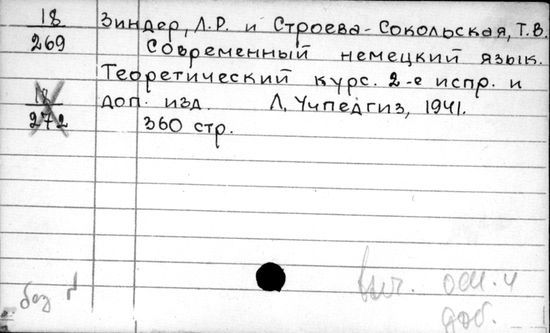 18
269
Зиндер, Л.Р. и Строева-Сокольская, Т.В.
Современный немецкий язык.
Теоретический курс. 2-е испр. и
доп. изд. Л, Учпедгиз, 1941.
360 стр.
18
272
без